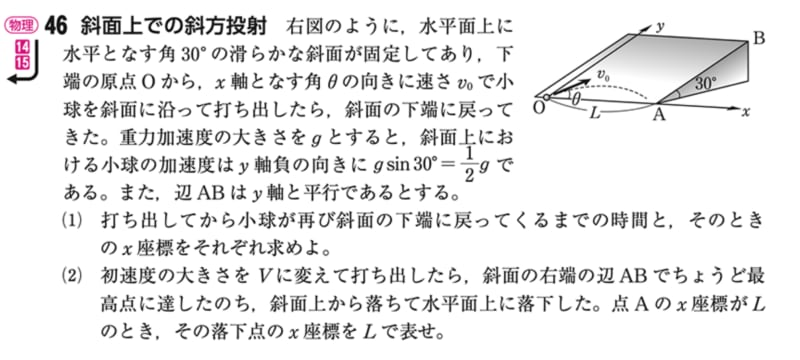 物理 46 斜面上での斜方投射 右図のように，水平面上に
14
15
水平となす角30°の滑らかな斜面が固定してあり，下
端の原点Oから，x軸となす角θの向きに速さv₀で小
球を斜面に沿って打ち出したら，斜面の下端に戻って
きた。重力加速度の大きさをgとすると，斜面上にお
ける小球の加速度はy軸負の向きに g sin 30°＝1/2 g で
ある。また，辺ABはy軸と平行であるとする。
(1) 打ち出してから小球が再び斜面の下端に戻ってくるまでの時間と，そのとき
のx座標をそれぞれ求めよ。
(2) 初速度の大きさをVに変えて打ち出したら，斜面の右端の辺ABでちょうど最
高点に達したのち，斜面上から落ちて水平面上に落下した。点Aのx座標がL
のとき，その落下点のx座標をLで表せ。
y
B
v₀
30°
O
θ
L
A
x